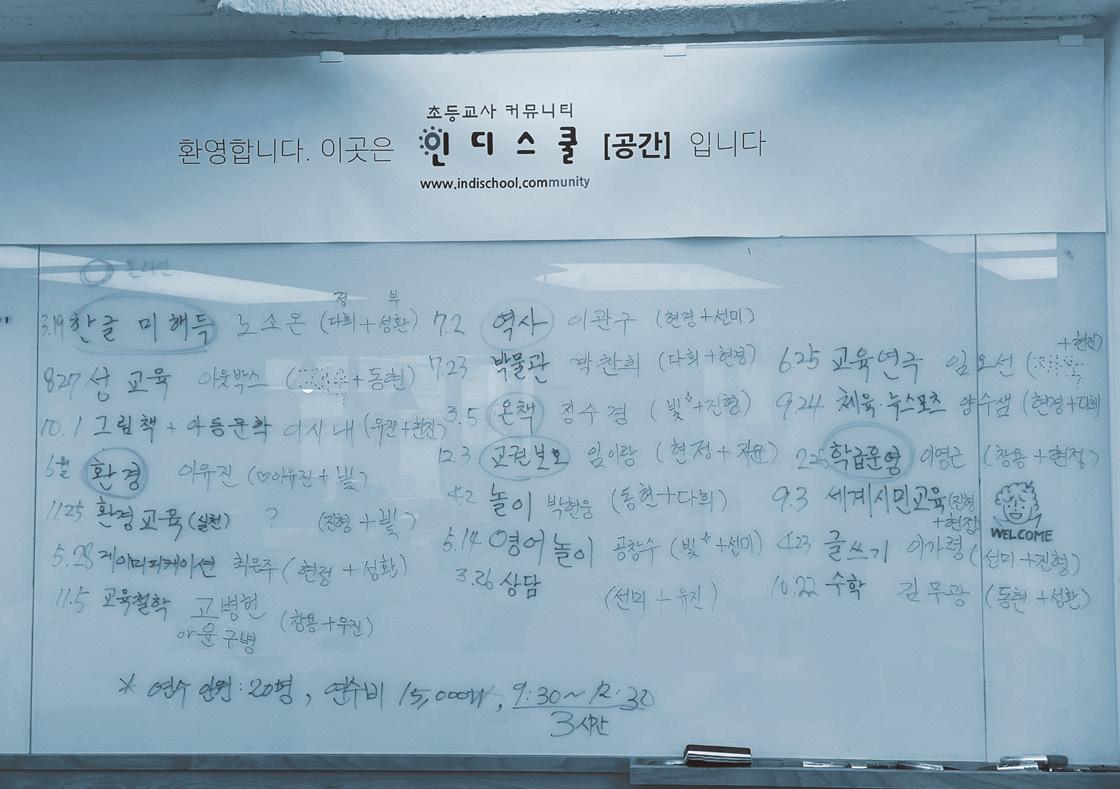 초등교사 커뮤니티
환영합니다. 이곳은 인디스쿨 [공간] 입니다
www.indischool.community
온라인
정 부
3.19 한글 미해득 노소온 (다희+성환)
8.27 성 교육 아웃박스 ( +동현)
10.1 그림책 + 아동문학 이시내 (유진+현진)
6월 환경 이유진 (♡이유진+빛)
11.25 환경교육 (실천) ? (진형+빛)
5.28 게이미피케이션 최은주 (현정+성환)
11.5 교육철학 고병헌 (창용+유진)
아윤구병
7.2 역사 이관구 (현경+선미)
7.23 박물관 박찬희 (다희+현경)
3.5 온책 정수경 (빛☆+진형)
12.3 교권보호 임이랑 (현정+자윤)
4.2 놀이 박현웅 (동현+다희)
5.14 영어놀이 공창수 (빛☆+선미)
3.26 상담 (선미+유진)
+현진
6.25 교육연극 임오선
9.24 체육·뉴스포츠 양수샘 (현경+다희
2.25 학급운영 이영근 (창용+현정)
9.3 세계시민교육 (진형
+현정)
4.23 글쓰기 이가령 (선미+진형)
10.22 수학 김무광 (동현+성환)
WELCOME
* 연수 인원: 20명, 연수비 15,000원, 9:30~12:30
3시간